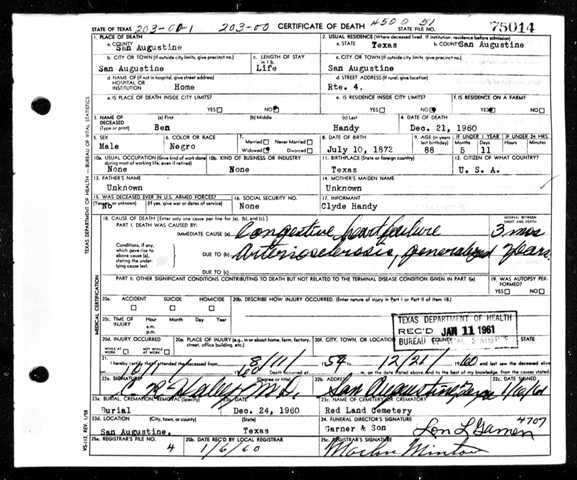 STATE OF TEXAS 203-00-1 203-00 CERTIFICATE OF DEATH STATE FILE NO. 75014
1. PLACE OF DEATH
a. COUNTY San Augustine
2. USUAL RESIDENCE (Where deceased lived. If institution, residence before admission)
a. STATE Texas b. COUNTY San Augustine
b. CITY OR TOWN (If outside city limits, give precinct no.) San Augustine
c. LENGTH OF STAY in 1b. Life
c. CITY OR TOWN (If outside city limits, give precinct no.) San Augustine
d. NAME OF (If not in hospital, give street address) HOSPITAL OR INSTITUTION Home
d. STREET ADDRESS (If rural, give location) Rte. 4.
e. IS PLACE OF DEATH INSIDE CITY LIMITS? YES NO
e. IS RESIDENCE INSIDE CITY LIMITS? YES NO
f. IS RESIDENCE ON A FARM? YES NO
3. NAME OF DECEASED (Type or print)
(a) First Ben
(b) Middle
(c) Last Handy
4. DATE OF DEATH Dec. 21, 1960
5. SEX Male
6. COLOR OR RACE Negro
7. Married Never Married Widowed Divorced
8. DATE OF BIRTH July 10, 1872
9. AGE (In years last birthday) 88
IF UNDER 1 YEAR Months 5 Days 11
IF UNDER 24 HRS. Hours Min.
10a. USUAL OCCUPATION (Give kind of work done during most of working life, even if retired) None
10b. KIND OF BUSINESS OR INDUSTRY None
11. BIRTHPLACE (State or foreign country) Texas
12. CITIZEN OF WHAT COUNTRY? U. S. A.
13. FATHER'S NAME Unknown
14. MOTHER'S MAIDEN NAME Unknown
15. WAS DECEASED EVER IN U.S. ARMED FORCES? (Yes, no, or unknown) (If yes, give war or dates of service) No
16. SOCIAL SECURITY NO. None
17. INFORMANT Clyde Handy
18. CAUSE OF DEATH (Enter only one cause per line for (a), (b), and (c).)
PART I. DEATH WAS CAUSED BY:
IMMEDIATE CAUSE (a) Congestive heart failure
INTERVAL BETWEEN ONSET AND DEATH 3 mos
Conditions, if any, which gave rise to above cause (a), stating the underlying cause last.
DUE TO (b) Arteriosclerosis, generalized Years.
DUE TO (c)
PART II. OTHER SIGNIFICANT CONDITIONS CONTRIBUTING TO DEATH BUT NOT RELATED TO THE TERMINAL DISEASE CONDITION GIVEN IN PART I(a)
19. WAS AUTOPSY PERFORMED? YES NO
20a. ACCIDENT SUICIDE HOMICIDE
20b. DESCRIBE HOW INJURY OCCURRED. (Enter nature of injury in Part I or Part II of item 18.)
20c. TIME OF INJURY Hour Month Day Year a.m. p.m.
TEXAS DEPARTMENT OF HEALTH
REC'D JAN 11 1961
20d. INJURY OCCURRED WHILE AT WORK NOT WHILE AT WORK
20e. PLACE OF INJURY (e.g., in or about home, farm, factory, street, office building, etc.)
20f. CITY, TOWN, OR LOCATION COUNTY STATE
21. I hereby certify that I attended the deceased from
22a. SIGNATURE (Degree or title) M.D.
22b. ADDRESS San Augustine, Texas
22c. DATE SIGNED
23a. BURIAL, CREMATION, REMOVAL (Specify) Burial
23b. DATE Dec. 24, 1960
23c. NAME OF CEMETERY OR CREMATORY Red Land Cemetery
23d. LOCATION (City, town, or county) (State) San Augustine, Texas
24. FUNERAL DIRECTOR'S SIGNATURE Garner & Son 4707
25a. REGISTRAR'S FILE NO. 4
25b. DATE REC'D BY LOCAL REGISTRAR 1/6/60
25c. REGISTRAR'S SIGNATURE
TEXAS DEPARTMENT OF HEALTH — BUREAU OF VITAL STATISTICS
MEDICAL CERTIFICATION